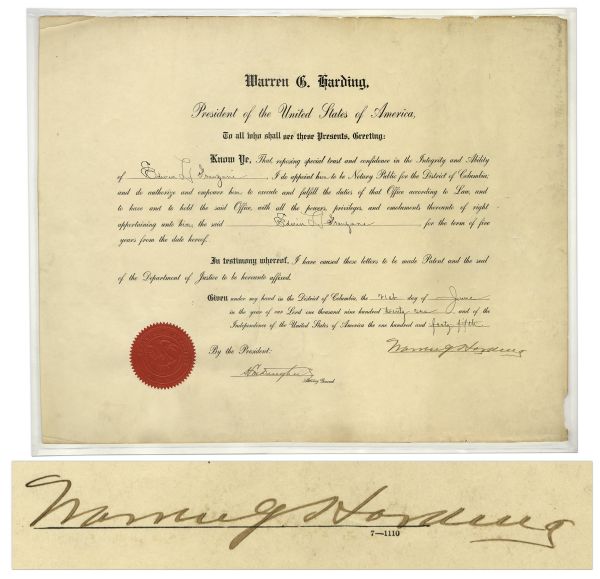 Warren G. Harding,
President of the United States of America,
To all who shall see these Presents, Greeting:
Know Ye, That reposing special trust and confidence in the Integrity and Ability
of Edwin L. , I do appoint him to be Notary Public for the District of Columbia,
and do authorize and empower him to execute and fulfill the duties of that Office according to Law, and
to have and to hold the said Office, with all the powers, privileges, and emoluments thereunto of right
appertaining unto him, the said Edwin L. , for the term of five
years from the date hereof.
In testimony whereof, I have caused these letters to be made Patent and the seal
of the Department of Justice to be hereunto affixed.
Given under my hand in the District of Columbia, the 21st day of June
in the year of our Lord one thousand nine hundred twenty one and of the
Independence of the United States of America the one hundred and forty fifth
By the President: Warren G Harding
Attorney General
Warren G Harding
7—1110